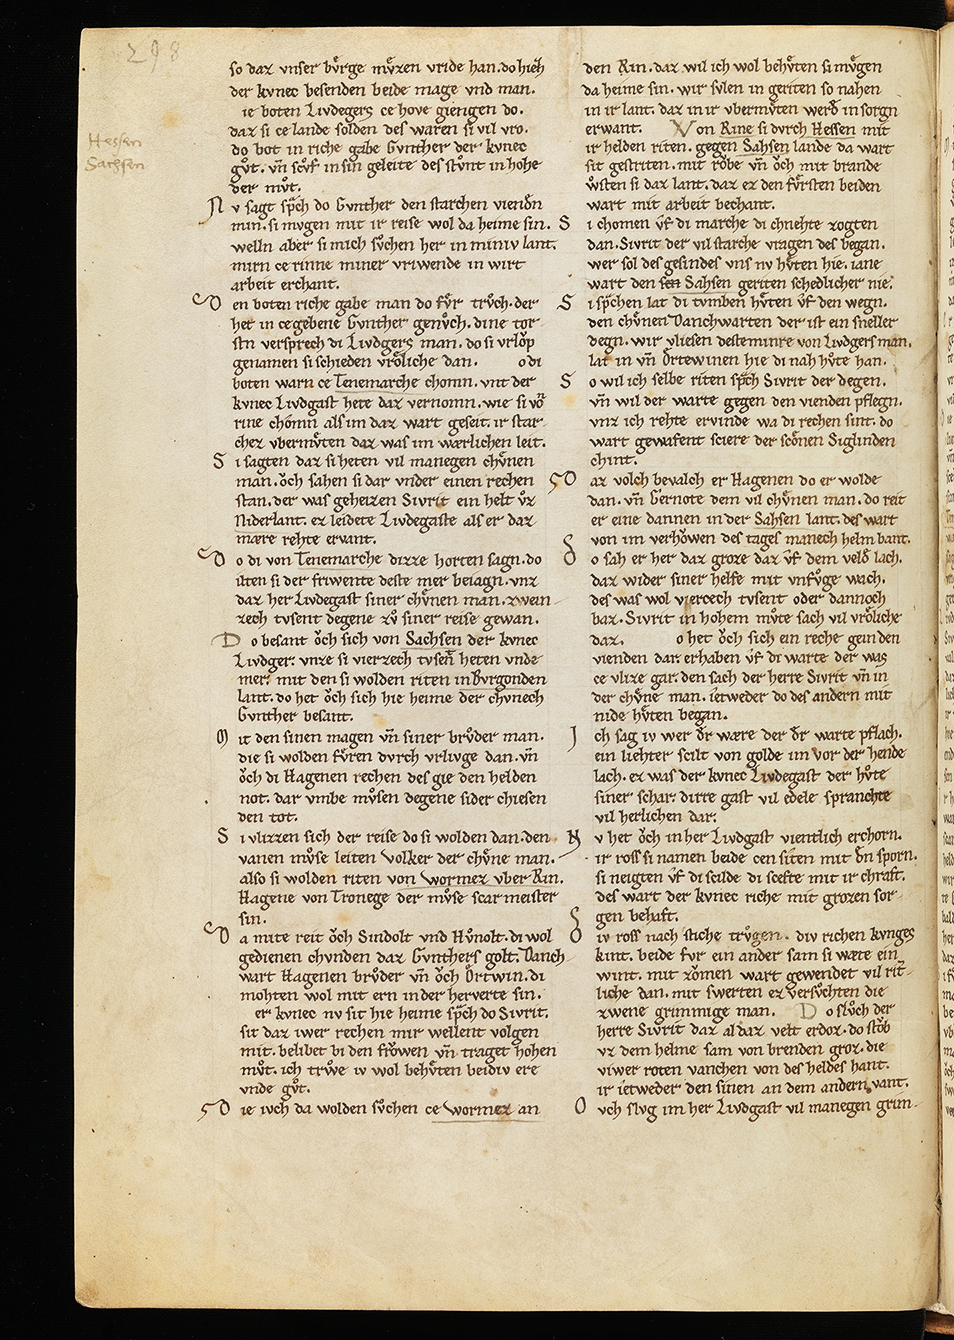 298
Hessen
Sachsen
so daz vnser bvͤrge mvͤzen vride han. do hieh
der kvnec besenden beide mage vnd man.
ie boten Livdegers ce hove giengen do.
daz si ce lande solden des waren si vil vro.
do bot in riche gabe Gvnther der kvnec
gvͦt. vn̄ scvͦf in sin geleite des stvͦnt in hohe
der mvͦt.
N v sagt sp̄ch do Gvnther den starchen viendn̄
min. si mvgen mit ir reise wol da heime sin.
welln aber si mich svͦchen her in miniv lant.
mirn ce rinne miner vriwende in wirt
arbeit erchant.
D en boten riche gabe man do fvͤr trvͦch. der
het in ce gebene Gvnther genvͦch. dine tor-
stn versprech di Livdgers man. do si vrlǒp
genamen si schieden vrǒliche dan. o di
boten warn ce Tenemarche chomn. vnt der
kvnec Livdgast hete daz vernomn. wie si võ
rine chomn als im daz wart geseit. ir star-
chez vbermvͤten daz was im wærlichen leit.
S i sagten daz si heten vil manegen chvͤnen
man. ǒch sahen si dar vnder einen rechen
stan. der was geheizen Sivrit ein helt vͦz
Niderlant. ez leidete Livdegaste als er daz
mære rehte ervant.
D o di von Tenemarche dizze horten sagn. do
ilten si der friwente deste mer beiagn. vnz
daz her Livdegast siner chvͤnen man. zwein-
zech tvsent degene zvͦ siner reise gewan.
D o besant ǒch sich von Sachsen der kvnec
Livdger. vnze si vierzech tvsen̄t heten vnde
mer. mit den si wolden riten in Bvrgonden
lant. do het ǒch sich hie heime der chvnech
Gvnther besant.
M it den sinen magen vn̄ siner brvͦder man.
die si wolden fvͤren dvrch vrlivge dan. vn̄
ǒch di Hagenen rechen des gie den helden
not. dar vmbe mvͦsen degene sider chiesen
den tot.
S i vlizzen sich der reise do si wolden dan. den
vanen mvͦse leiten Volker der chvͤne man.
also si wolden riten von Wormez vber Rin.
Hagene von Tronege der mvͦse scarmeister
sin.
D a mite reit ǒch Sindolt vnd Hvͦnolt. di wol
gedienen chvnden daz Gvnthers golt. Danch-
wart Hagenen brvͦder vn̄ ǒch Ortwin. di
mohten wol mit ern in der herverte sin.
er kvnec nv sit hie heime sp̄ch do Sivrit.
sit daz iwer rechen mir wellent volgen
mit. belibet bi den frǒwen vn̄ traget hohen
mvͦt. ich trvͦwe iv wol behvͤten beidiv ere
vnde gvͦt.
D ie ivch da wolden svͦchen ce Wormez an
den Rin. daz wil ich wol behvͤten si mvͤgen
da heime sin. wir svlen in geriten so nahen
in ir lant. daz in ir vbermvͤten werd̄ in sorgn
erwant. Von Rine si dvrch Hessen mit
ir helden riten. gegen Sahsen lande da wart
sit gestriten. mit rǒbe vn̄ ǒch mit brande
wͦsten si daz lant. daz ez den fvͤrsten beiden
wart mit arbeit bechant.
S i chomen vͦf di marche di chnehte zogten
dan. Sivrit der vil starche vragen des began.
wer sol des gesindes vns nv hvͤten hie. iane
wart den sen Sahsen geriten schedlicher nie.
S i sp̄chen lat di tvmben hvͤten vͦf den wegn.
den chvͤnen Danchwarten der ist ein sneller
degn. wir vliesen deste minre von Livdgers man.
lat in vn̄ Ortewinen hie di nah hvͦte han.
S o wil ich selbe riten sp̄ch Sivrit der degen.
vn̄ wil der warte gegen den vienden pflegn.
vnz ich rehte ervinde wa di rechen sint. do
wart gewafent sciere der scǒnen Siglinden
chint.
D az volch bevalch er Hagenen do er wolde
dan. vn̄ Gernote dem vil chvͤnen man. do reit
er eine dannen in der Sahsen lant. des wart
von im verhǒwen des tages manech helm bant.
D o sah er her daz groze daz vͦf dem veld̄ lach.
daz wider siner helfe mit vnfvͦge wach.
des was wol viercech tvsent oder dannoch
baz. Sivrit in hohem mvͦte sach vil vrǒliche
daz. o het ǒch sich ein reche gein den
vienden dar. erhaben vͦf di warte der was
ce vlize gar. den sach der herre Sivrit vn̄ in
der chvͤne man. ietweder do des andern mit
nide hvͤten began.
I ch sag iv wer d̄r wære der d̄r warte pflach.
ein liehter scilt von golde im vor der hende
lach. ez was der kvnec Livdegast der hvͦte
siner schar. dirre gast vil edele spranchte
vil herlichen dar.
N v het ǒch in her Livdgast vientlich erchorn.
ir ross si namen beide cen siten mit d̄n sporn.
si neigten vͦf di scilde di scefte mit ir chraft.
des wart der kvnec riche mit grozen sor-
gen behaft.
D iv ross nach stiche trvͦgen. div richen kvnges
kint. beide fvr ein ander sam si wæte ein
wint. mit zǒmen wart gewendet vil rit-
liche dan. mit swerten ez versvͦchten die
zwene grimmige man. D o slvͦch der
herre Sivrit daz al daz velt erdoz. do stǒb
vz dem helme sam von brenden groz. die
viwer roten vanchen von des heldes hant.
ir ietweder den sinen an dem andern vant.
O vch slvg im her Livdgast vil manegen grim-